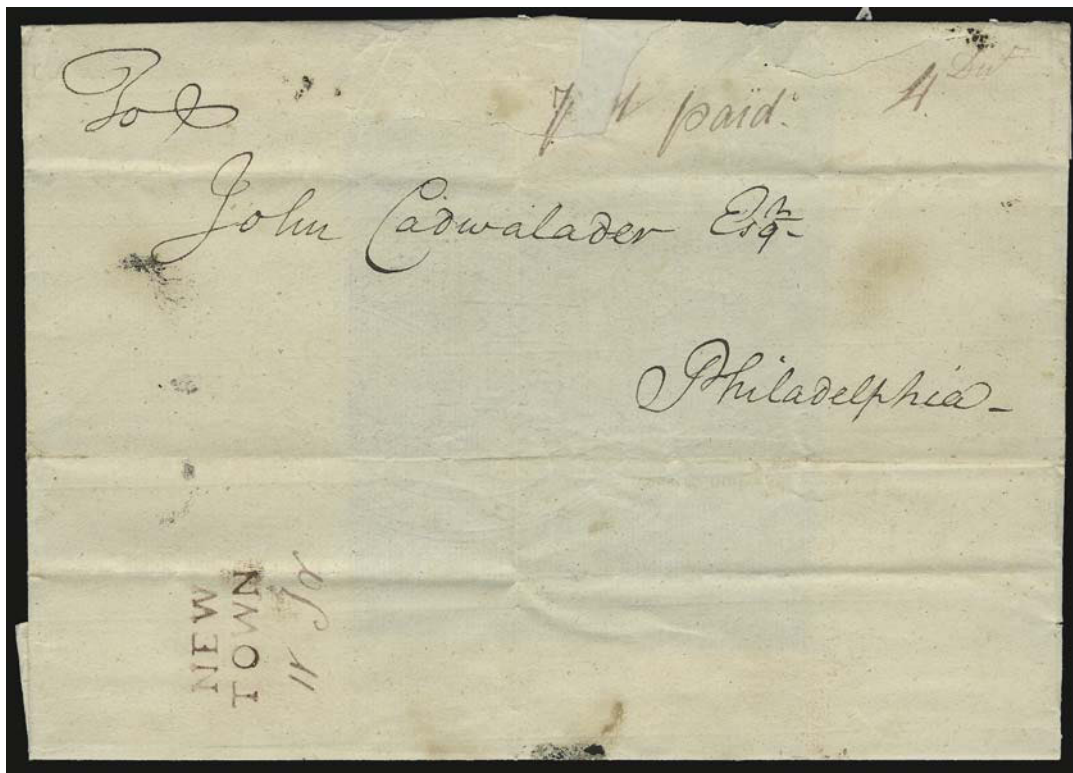 To
7 paid. 4 Dwt
John Cadwalader Esqr
Philadelphia-
NEW
TOWN